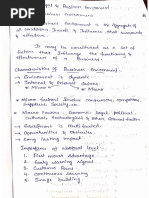 Concept of Business Environment
Business Environment
Business Environment is the Aggregate of
all conditions, Events & Influence that surrounds
& affects it.
It may be considered as a Set of
factors that Influence the functioning &
effectiveness of a Business.
Characteristics of Business Environment:-
→ Environment is dynamic
→ Internal & External factors
→ Micro & Macro
→ Micro factors
Suppliers, Society etc.
→ Macro factors - Economic, legal, political,
Cultural, technological & other External factors.
→ Environment is Multi-faceted.
→ Opportunities & Obstacles
→ Long lasting Impact
Importance of
1. First move Advantage
2. Early warning Signal
3. Customer focus
4. Continuous learning
5. Image building.